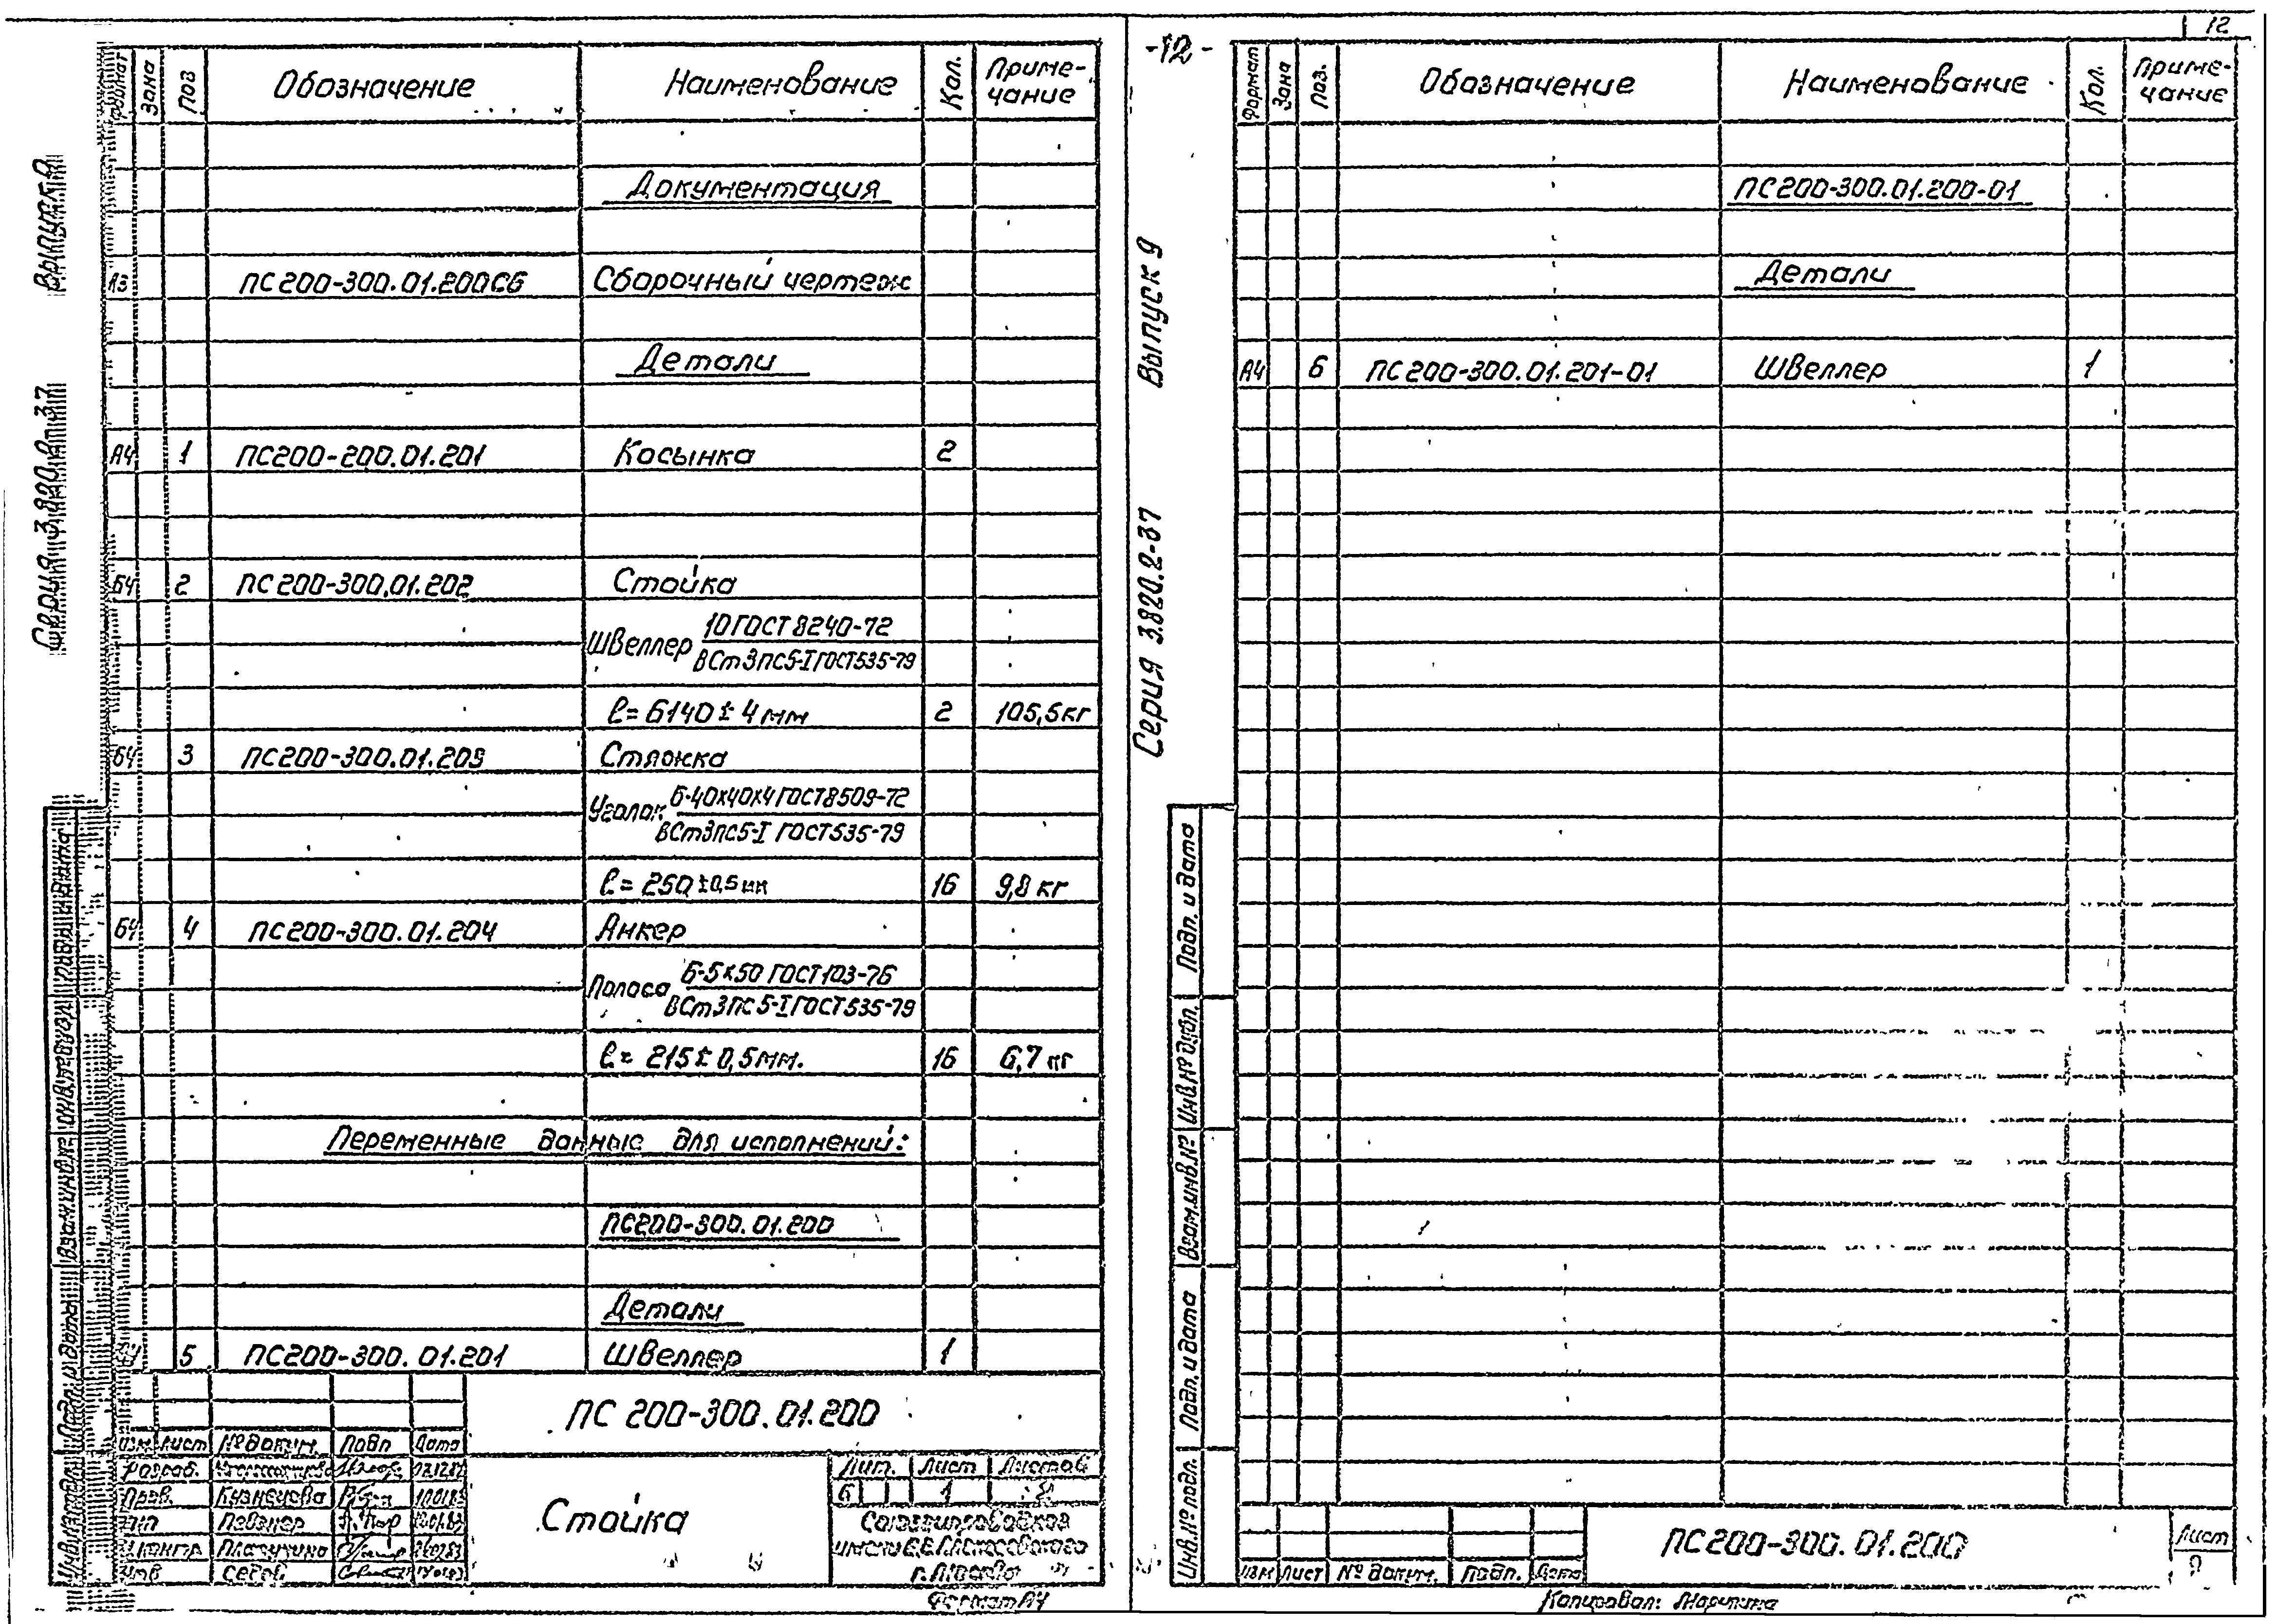 12
Выпуск 9
Серия 3.820.2-37
Формат Зона Поз Обозначение Наименование Кол. Приме-
чание
Документация
А3 ПС200-300.01.200СБ Сборочный чертеж
Детали
А4 1 ПС200-200.01.201 Косынка 2
Б4 2 ПС200-300.01.202 Стойка
Швеллер 10 ГОСТ 8240-72
ВСт3пс5-I ГОСТ535-79
ℓ= 6140 ± 4 мм 2 105,5 кг
Б4 3 ПС200-300.01.203 Стяжка
Уголок Б-40х40х4 ГОСТ8509-72
ВСт3пс5-I ГОСТ535-79
ℓ= 250 ±0,5 мм 16 9,8 кг
Б4 4 ПС200-300.01.204 Анкер
Полоса Б-5х50 ГОСТ103-76
ВСт3пс5-I ГОСТ535-79
ℓ= 215 ± 0,5 мм. 16 6,7 кг
Переменные данные для исполнений:
ПС200-300.01.200
Детали
5 ПС200-300.01.201 Швеллер 1
ПС 200-300.01.200
Изм Лист № докум. Подп Дата
Разраб.
Пров. Кузнецова
Певзнер
Н.контр. Плагунина
Утв Седов
Стойка
Лит. Лист Листов
Б 1 2
Союзгипроводхоз
имени Е.Е.Алексеевского
г. Москва
Формат А4
Подп. и дата
Взам.инв.№
-12-
Выпуск 9
Серия 3.820.2-37
Формат Зона Поз. Обозначение Наименование Кол. Приме-
чание
ПС200-300.01.200-01
Детали
А4 6 ПС200-300.01.201-01 Швеллер 1
Подп. и дата
Инв.№ дубл.
Взам.инв.№
Подп. и дата
Инв.№ подл.
Изм Лист № докум. Подп. Дата
ПС200-300.01.200
Лист
2
Копировал: